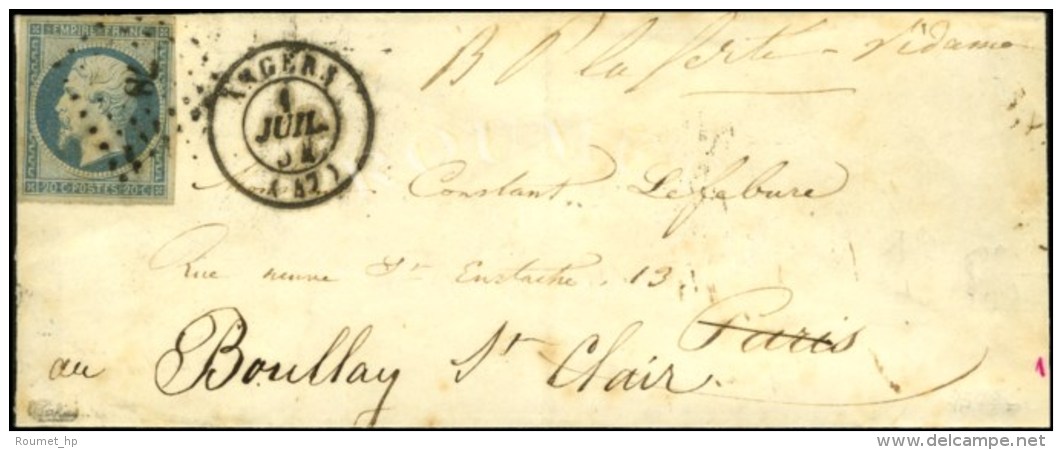 EMPIRE FRANC
78
20 C POSTES 20 C
ANGERS
JUIL
(47)
B P la ferté-Vidame
Constant Lefebure
Rue neuve St Eustache. 13.
Paris
au Boullay St Clair.
1
Roumet_hp
delcampe.net